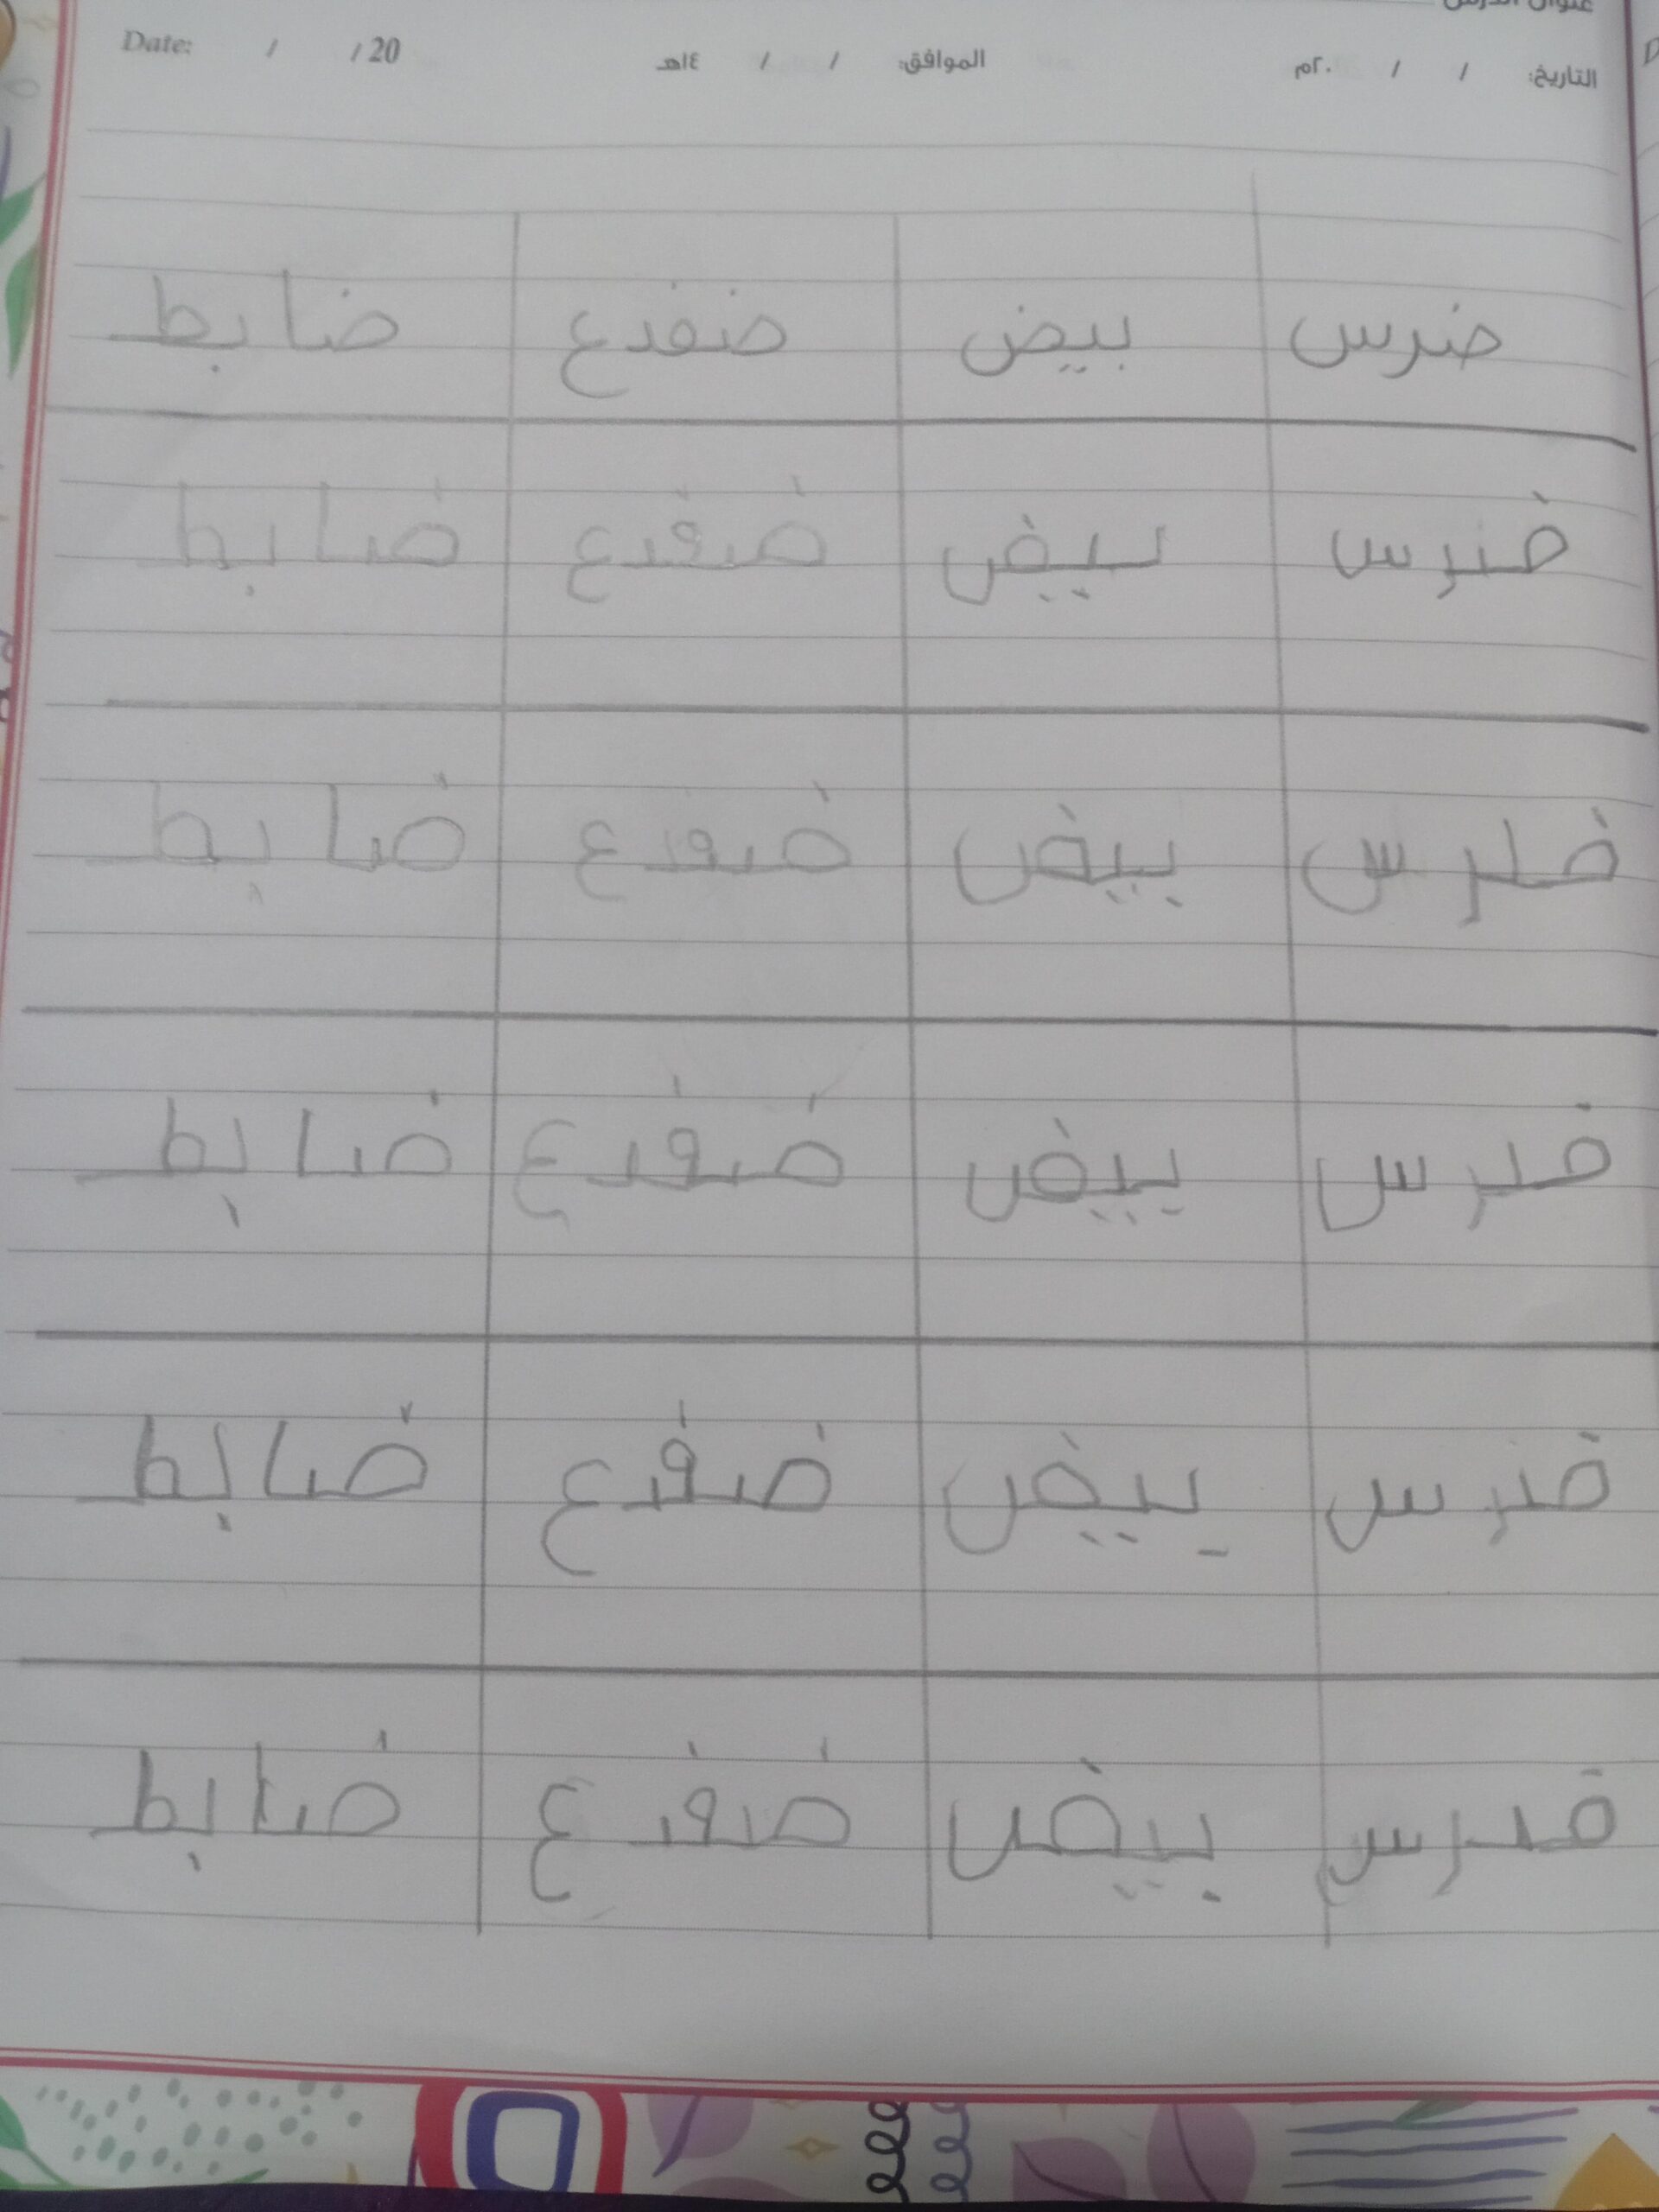 عنوان الدرس
التاريخ: / / ٢٠م الموافق: / / ١٤هـ Date: / /20
ضرس بيض ضفدع ضابط
ضرس بيض ضفدع ضابط
ضرس بيض ضفدع ضابط
ضرس بيض ضفدع ضابط
ضرس بيض ضفدع ضابط
ضرس بيض ضفدع ضابط